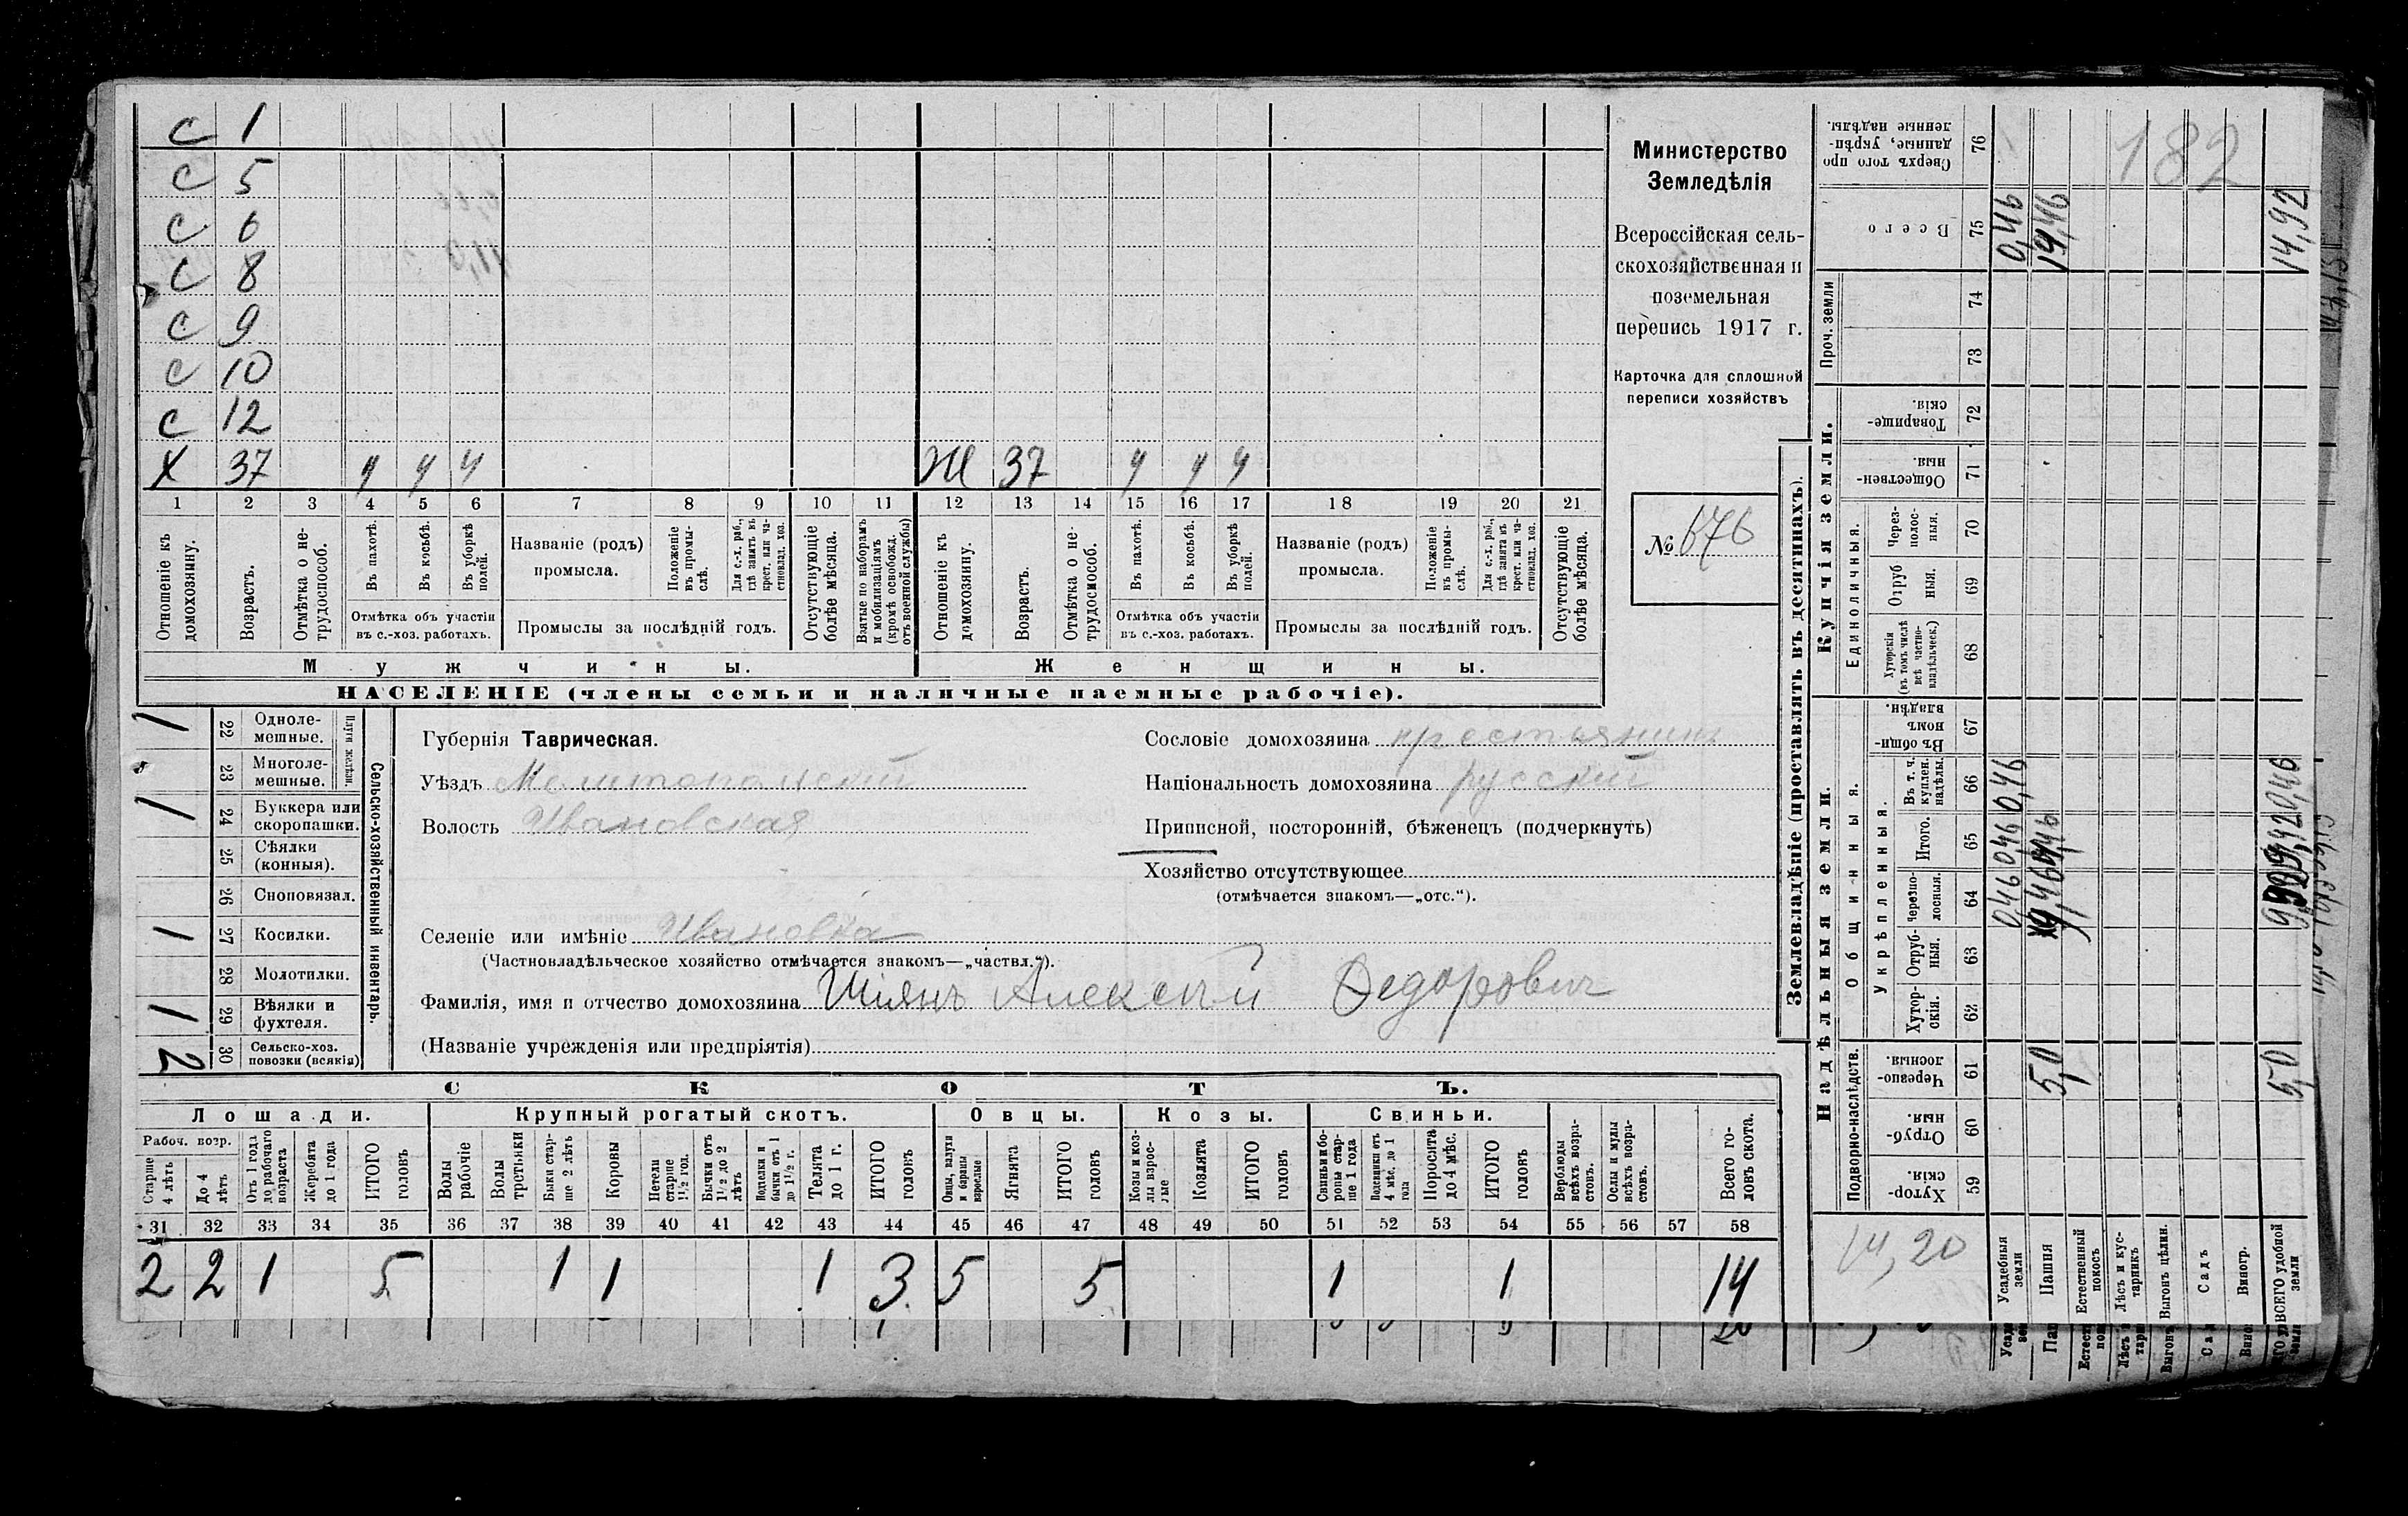 С 1
С 5
С 6
С 8
С 9
С 10
С 12
Х 37 ч ч ч Ж 37 ч ч ч
1 2 3 4 5 6 7 8 9 10 11 12 13 14 15 16 17 18 19 20 21
Отношеніе къ домохозяину.
Возрастъ.
Отмѣтка о не-трудоспособ.
Въ пахотѣ.
Въ косьбѣ.
Въ уборкѣ полей.
Отмѣтка объ участіи въ с.-хоз. работахъ.
Названіе (родъ) промысла.
Положеніе въ промы-слѣ.
Для с.-х. раб., гдѣ занятъ въ крест. или ча-стновлад. хоз.
Промыслы за послѣдній годъ.
Отсутствующіе болѣе мѣсяца.
Взятые по наборамъ и мобилизаціямъ (кромѣ освобожд. отъ военной службы)
Отношеніе къ домохозяину.
Возрастъ.
Отмѣтка о не-трудоспособ.
Въ пахотѣ.
Въ косьбѣ.
Въ уборкѣ полей.
Отмѣтка объ участіи въ с.-хоз. работахъ.
Названіе (родъ) промысла.
Положеніе въ промы-слѣ.
Для с.-х. раб., гдѣ занята въ крест. или ча-стновлад. хоз.
Промыслы за послѣдній годъ.
Отсутствующіе болѣе мѣсяца.
Мужчины. Женщины.
НАСЕЛЕНІЕ (члены семьи и наличные наемные рабочіе).
Министерство
Земледѣлія
Всероссійская сель-
скохозяйственная и
поземельная
перепись 1917 г.
Карточка для сплошной
переписи хозяйствъ
№ 676
1 22 Одноле-мешные.
23 Многоле-мешные.
Плуги желѣзн.
1 24 Буккера или скоропашки.
25 Сѣялки (конныя).
26 Сноповязал.
1 27 Косилки.
28 Молотилки.
1 29 Вѣялки и фухтеля.
2 30 Сельско-хоз. повозки (всякія)
Сельско-хозяйственный инвентарь.
Губернія Таврическая.
Уѣздъ Мелитопольскій
Волость Ивановская
Селеніе или имѣніе Ивановка
(Частновладѣльческое хозяйство отмѣчается знакомъ—„частвл.“).
Сословіе домохозяина крестьянинъ
Національность домохозяина русскій
Приписной, посторонній, бѣженецъ (подчеркнуть)
Хозяйство отсутствующее
(отмѣчается знакомъ—„отс.“).
Фамилія, имя и отчество домохозяина Шіянъ Алексѣй Федоровичъ
(Названіе учрежденія или предпріятія)
СКОТЪ.
Лошади. Крупный рогатый скотъ. Овцы. Козы. Свиньи.
Рабоч. возр.
Старше 4 лѣтъ
До 4 лѣтъ
Отъ 1 года до рабочаго возраста
Жеребята до 1 года
ИТОГО головъ
Волы рабочіе
Волы третьяки
Быки стар-ше 2 лѣтъ
Коровы
Нетели старше 1½ год.
Бычки отъ 1½ до 2 лѣтъ
Подтелки и бычки отъ 1 до 1½ г.
Телята до 1 г.
ИТОГО головъ
Овцы, валухи и бараны взрослые
Ягнята
ИТОГО головъ
Козы и коз-лы взрос-лые
Козлята
ИТОГО головъ
Свиньи и бо-ровы стар-ше 1 года
Подсвинки отъ 4 мѣс. до 1 года
Поросята до 4 мѣс.
ИТОГО головъ
Верблюды всѣхъ возра-стовъ.
Ослы и мулы всѣхъ возра-стовъ.
Всего го-ловъ скота.
31 32 33 34 35 36 37 38 39 40 41 42 43 44 45 46 47 48 49 50 51 52 53 54 55 56 57 58
2 2 1 5 1 1 1 3 5 5 1 1 14
Землевладѣніе (проставлять въ десятинахъ).
Надѣльныя земли. Купчія земли.
Подворно-наслѣдств.
Общинныя.
Укрѣпленныя.
Единоличныя.
Проч. земли
Хутор-скія. 59
Отруб-ныя. 60
Черезпо-лосныя. 61
Хутор-скія. 62
Отруб-ныя. 63
Черезпо-лосныя. 64
Итого. 65
Въ т. ч. куплен. надѣлы. 66
Въ общи-номъ владѣн. 67
Хуторскія (въ томъ числѣ всѣ частно-владѣльческ.) 68
Отруб ныя. 69
Через-полос-ныя. 70
Обществен-ныя. 71
Товарище-скія. 72
73
74
Всего 75
Сверхъ того про данные, укрѣп-ленные надѣлы. 76
182
14,20
Усадебныя земли 0,46 0,46 0,46 0,46
Пашня 5,0 14,46
Естественный покосъ
Лѣсъ и кус-тарникъ
Выгонъ цѣлин.
Садъ
Виногр.
ВСЕГО удобной земли 5,0 0,46 14,92